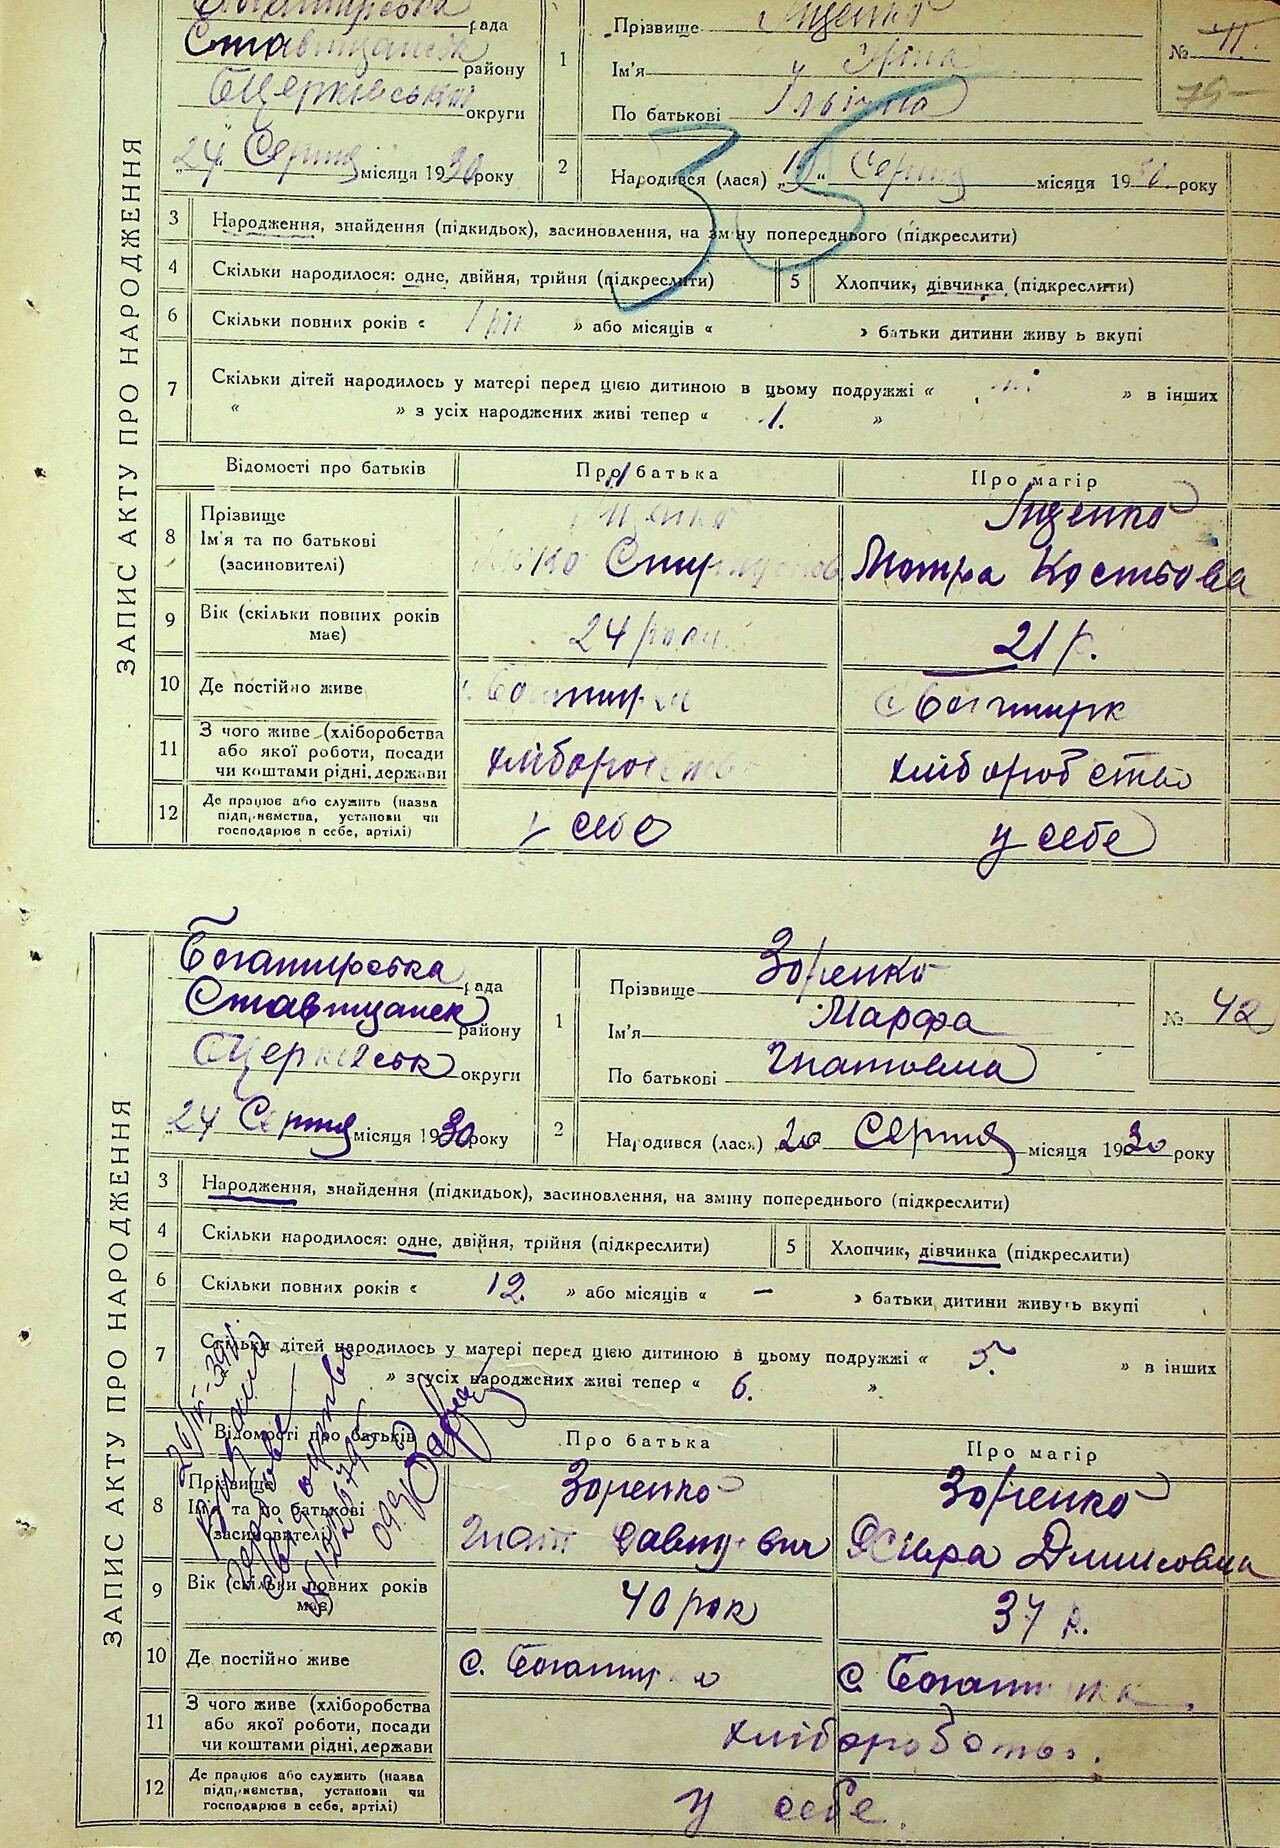 ЗАПИС АКТУ ПРО НАРОДЖЕННЯ
Богатирська рада
Ставищанськ району
Бцерківської округи
"24" Серпня місяця 1930 року
1 Прізвище Іщенко
Ім'я
По батькові Ільківна
№ 41.
75
35
2 Народився (лася) Серпня місяця 1930. року
3 Народження, знайдення (підкидьох), засиновлення, на зміну попереднього (підкреслити)
4 Скільки народилося: одне, двійня, трійня (підкреслити)
5 Хлопчик, дівчинка (підкреслити)
6 Скільки повних років « 1 рік » або місяців « » батьки дитини живуть вкупі
7 Скільки дітей народилось у матері перед цією дитиною в цьому подружжі « ні » в інших
« » з усіх народжених живі тепер « 1. »
Відомості про батьків Про батька Про матір
8 Прізвище
Ім'я та по батькові
(засиновителі)
Іщенко
Ілько
Іщенко
Мотря Костьова
9 Вік (скільки повних років має) 24 роки 21 р.
10 Де постійно живе с. Богатирк с Богатирк
11 З чого живе (хліборобства
або якої роботи, посади
чи коштами рідні, держави
хліборобство хліборобство
12 Де працює або служить (назва
підприємства, установи чи
господарює в себе, артілі)
у себе у себе
ЗАПИС АКТУ ПРО НАРОДЖЕННЯ
Богатирська рада
Ставищанськ району
Бцерківськ округи
"24 Серпня місяця 1930 року
1 Прізвище Зоренко
Ім'я Марфа
По батькові Гнатовна
№ 42
2 Народився (лася) 20 Серпня місяця 1930 року
3 Народження, знайдення (підкидьох), засиновлення, на зміну попереднього (підкреслити)
4 Скільки народилося: одне, двійня, трійня (підкреслити)
5 Хлопчик, дівчинка (підкреслити)
6 Скільки повних років « 12. » або місяців « – » батьки дитини живуть вкупі
7 Скільки дітей народилось у матері перед цією дитиною в цьому подружжі « 5. » в інших
» з усіх народжених живі тепер « 6. »
Відомості про батьків Про батька Про матір
8 Прізвище
Ім'я та по батькові
засиновителі
Зоренко
Гнат Савич
Зоренко
Денисовна
9 Вік (скільки повних років має) 40 рок 37 р.
10 Де постійно живе с. Богатирка с. Богатирка
11 З чого живе (хліборобства
або якої роботи, посади
чи коштами рідні, держави
хліборобство.
12 Де працює або служить (назва
підприємства, установи чи
господарює в себе, артілі)
у себе.